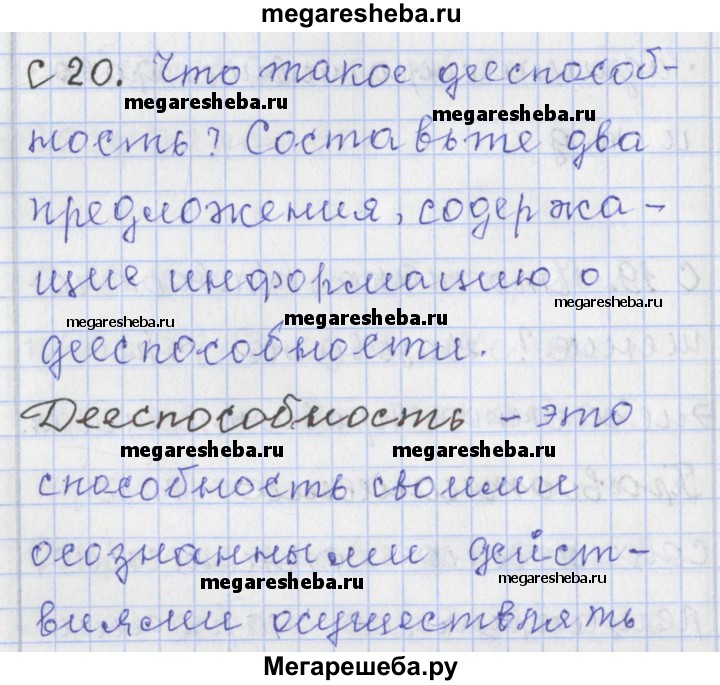 megaresheba.ru
С 20. Что такое дееспособ-
megaresheba.ru megaresheba.ru
ность? Составьте два
предложения, содержа-
щие информацию о
megaresheba.ru
megaresheba.ru megaresheba.ru
дееспособности.
Дееспособность - это
megaresheba.ru megaresheba.ru
способность своими
осознанными дейст-
megaresheba.ru megaresheba.ru
виями осуществлять
Мегарешеба.ру